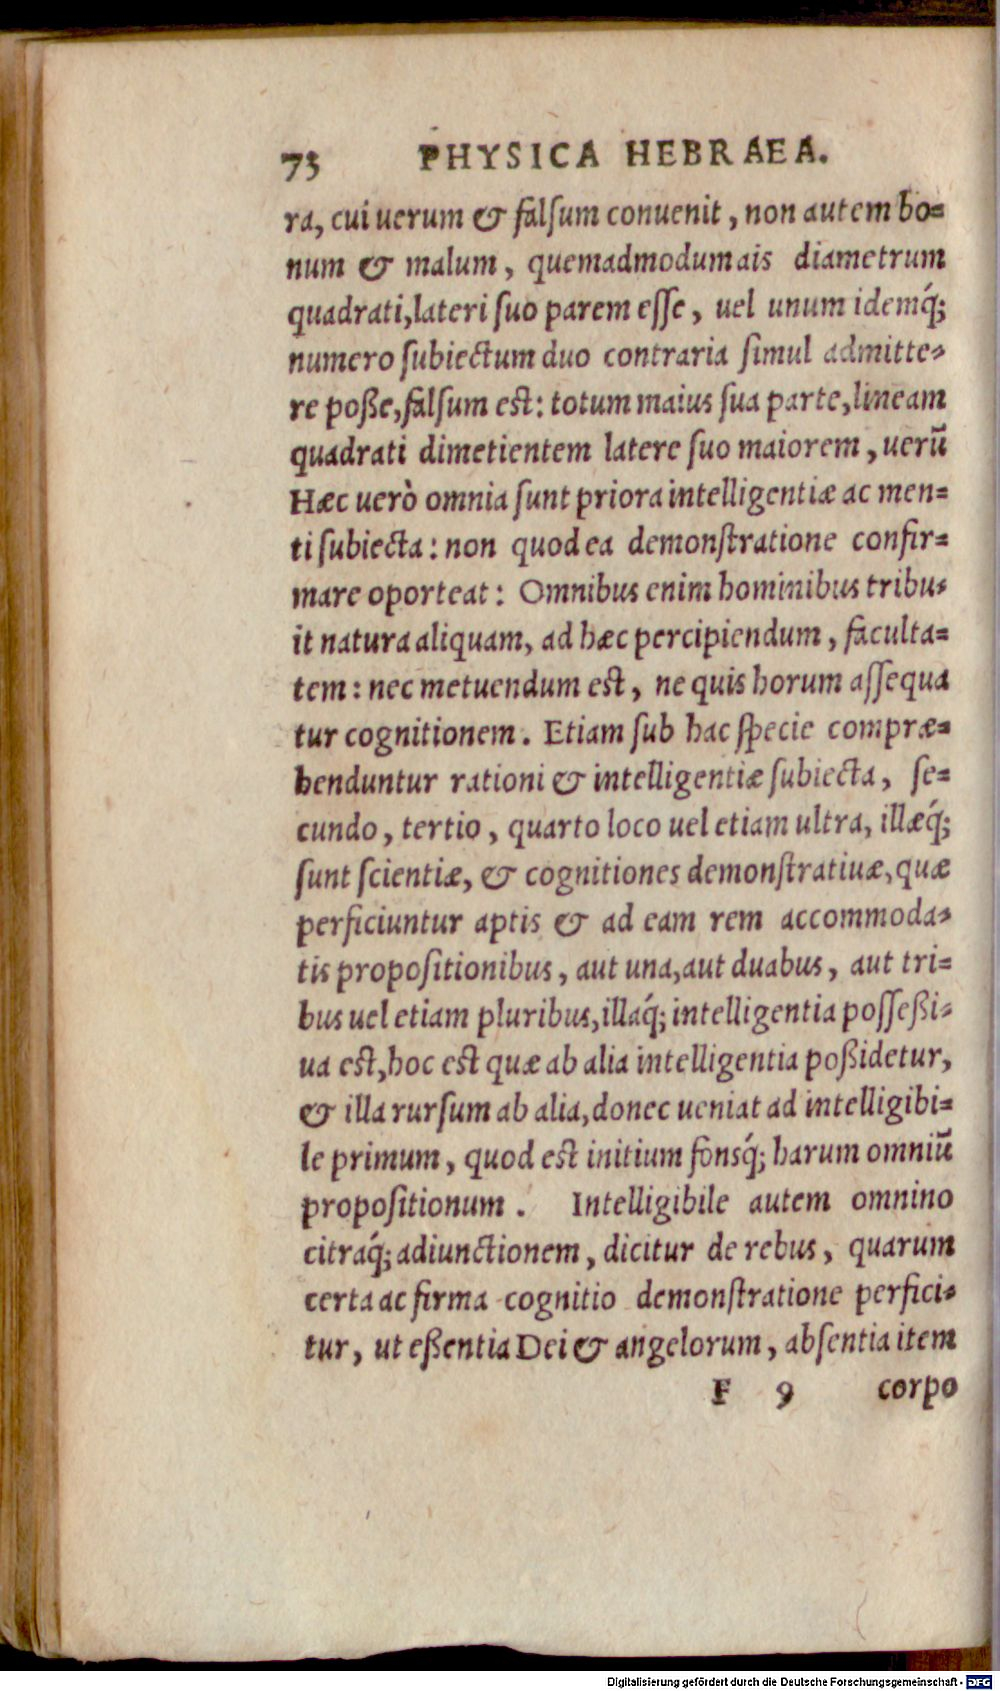 73 PHYSICA HEBRAEA.
ra, cui uerum & falſum conuenit, non autem bo=
num & malum, quemadmodum ais diametrum
quadrati, lateri ſuo parem eſſe, uel unum idemq́;
numero ſubiectum duo contraria ſimul admitte=
re poße, falſum est: totum maius ſua parte, lineam
quadrati dimetientem latere ſuo maiorem, uerũ
Hæc uerò omnia ſunt priora intelligentiæ ac men=
ti ſubiecta: non quod ea demonſtratione confir=
mare oporteat: Omnibus enim hominibus tribu=
it natura aliquam, ad hæc percipiendum, faculta=
tem: nec metuendum est, ne quis horum aſſequa
tur cognitionem. Etiam ſub hac ſpecie compræ=
henduntur rationi & intelligentiæ ſubiecta, ſe=
cundo, tertio, quarto loco uel etiam ultra, illæq́;
ſunt ſcientiæ, & cognitiones demonſtratiuæ, quæ
perficiuntur aptis & ad eam rem accommoda=
tis propoſitionibus, aut una, aut duabus, aut tri=
bus uel etiam pluribus, illaq́; intelligentia poſſeßi=
ua est, hoc est quæ ab alia intelligentia poßidetur,
& illa rurſum ab alia, donec ueniat ad intelligibi=
le primum, quod est initium fonsq́; harum omniũ
propoſitionum. Intelligibile autem omnino
citraq́; adiunctionem, dicitur de rebus, quarum
certa ac firma cognitio demonſtratione perfici=
tur, ut eßentia Dei & angelorum, abſentia item
F 9 corpo
Digitalisierung gefördert durch die Deutsche Forschungsgemeinschaft - DFG